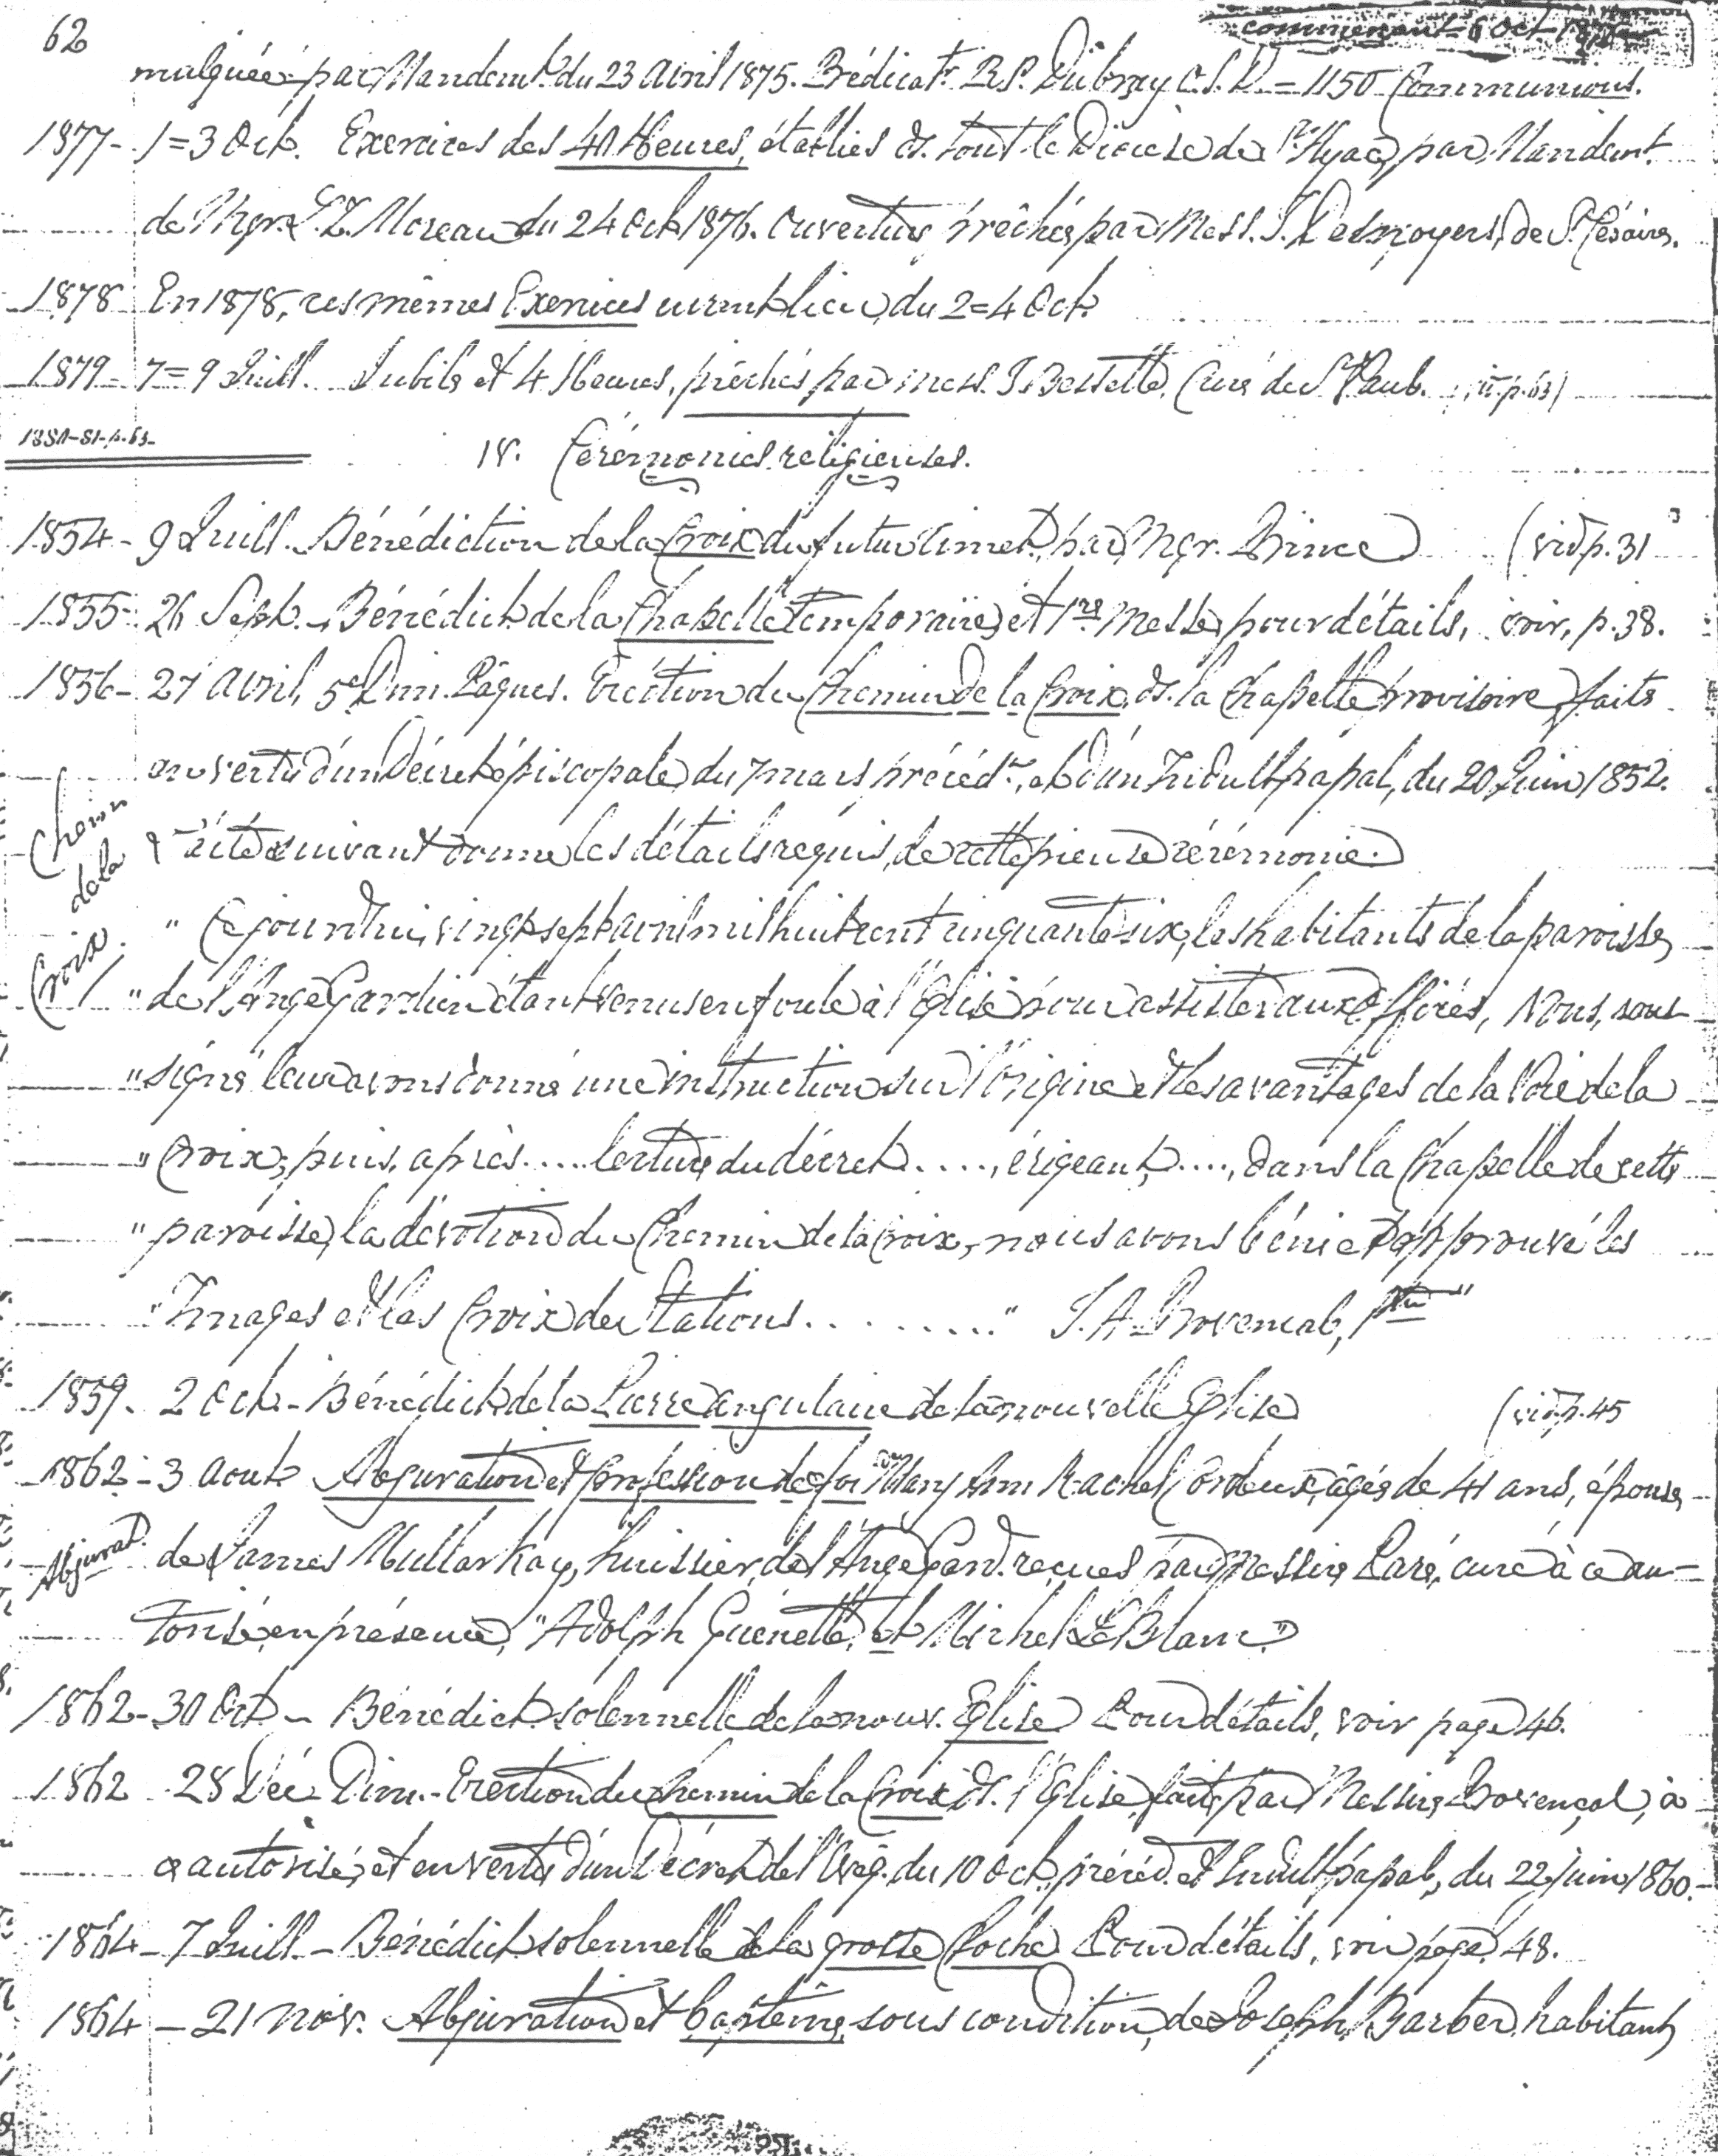 62
commençant 6 Oct 1875
mulguée par Mandemt. du 23 Avril 1875. Prédicatr. R.P. Dubray C.S.V. = 1150 Communions.
1877 - 1 = 3 Oct. Exercices des 40 Heures, établies ds. tout le Diocèse de St. Hyac, par Mandemt.
de Mgr. L.Z. Moreau du 24 Oct 1876. Ouverture prêchée par Mess. J. Desnoyers, de St. Césaire.
1878 En 1878, ces mêmes Exercices eurent lieu, du 2 = 4 Oct.
1879 - 7 = 9 Juill. Jubilé et 4 Heures, prêchés par Mess. J. Bessette, Curé de St. Paul. p. 63)
1880-81-p.63-
18. Cérémonies religieuses.
1854 - 9 Juill. Bénédiction de la Croix du futur Cimet. par Mgr. Prince (vid p. 31
1855 - 26 Sept. - Bénédict. de la Chapelle temporaire, et 1re Messe, pour détails, voir, p. 38.
1856 - 27 Avril, 5e Dim. Pâques. Erection du Chemin de la Croix, ds. la Chapelle provisoire, faite
en vertu d'un Décret épiscopale, du 7 mars précédt., et d'un Indult papal, du 20 Juin 1852.
Chemin de la Croix.
suivant donne les détails requis, de cette pieuse cérémonie.
" Ce jourd'hui, vingt sept avril mil huit cent cinquante six, les habitants de la paroisse,
" de l'Ange Gardien étant venus en foule à l'Eglise pour assister aux Offices, Nous, sous-
" signé leur avons donné une instruction sur l'origine et les avantages de la Voie de la
" Croix; puis, après .... lecture du décret ...., érigeant, ...., dans la Chapelle de cette
" paroisse, la dévotion du Chemin de la Croix, nous avons béni et approuvé les
" Images et les Croix des Stations ......... " J. A. Provençal, Ptre "
1859. 2 Oct. - Bénédict. de la Pierre angulaire de la nouvelle Eglise (vid. p. 45
1862 - 3 Aout. Abjuration et profession de foi de Mary Ann Rachel Cordeux, âgée de 41 ans, épouse,
Abjurat. de James Mullarkay, huissier, de l'Ange Gard. reçues par Messire Paré, curé à ce au-
torisé, en présence, "Adolph Guenette, et Michel LeBlanc."
1862 - 30 Oct. - Bénédict. solennelle de la nouv. Eglise Pour détails, voir page 46.
1862 - 28 Déc Dim. - Erection du Chemin de la Croix ds. l'Eglise, faite par Messire Provençal, à
ce autorisé, et en vertu d'un Décret de l'Evêq. du 10 Oct. précéd. et Indult papal, du 22 Juin 1860.
1864 - 7 Juill. - Bénédict. solennelle de la grosse Cloche Pour détails, voir page 48.
1864 - 21 Nov. Abjuration et baptême, sous condition, de Joseph Barber, habitant,